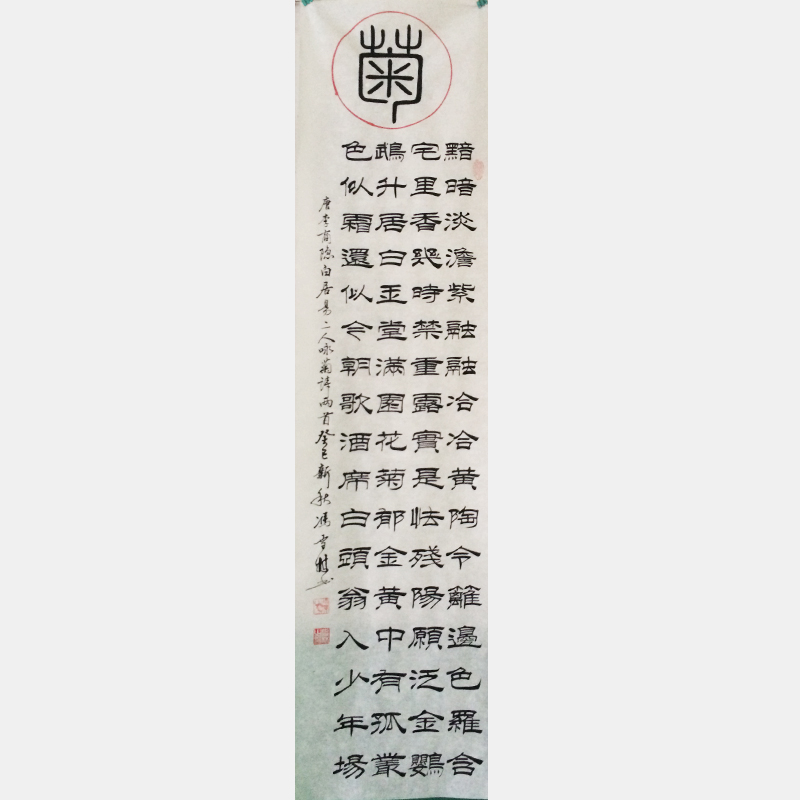 菊
黯暗淡澹紫融融冶冶黄陶令籬邊色羅含
宅里香幾時禁重露實是怯残陽願泛金鸚
鵡升居白玉堂滿園花菊郁金黄中有孤叢
色似霜還似今朝歌酒席白頭翁入少年場
唐李商隐白居易二人咏菊詩兩首癸巳新秋馮雪